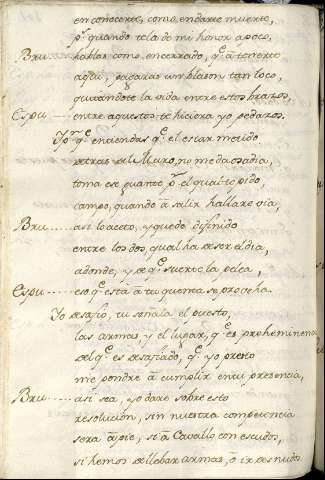 en conocerte, como endarte muerte,
p.r quando tela de mi honor apoco,
Bru hablar como encerrado, q.e à tenerte
aqui, pagaras un blason tan loco,
quitandote la vida entre estos brazos,
Espu entre aquestos te hiciera yo pedazos.
Y p.r q.e entiendas q.e el estar metido
detras del Muro, no me dà osadia,
toma ese guante p.r el qual te pido
campo, quando à salir hallare via,
Bru asi lo aceto, y quede difinido
entre los dos, qual ha de ser el dia,
adonde, y de q.e suerte la pelea,
Espu eso q.e està à tu quenta se proveha.
Yo desafio, tu señala el puesto,
las armas, y el lugar, q.e es prehominen
del q.e es desafiado, q.e yo presto
me pondre à cumplir en tu presencia,
Bru asi sea, yo darè sobre esto
resolucion, sin nuestra competencia
sera àpie, si à Cavallo con escudos,
si hemos de llebar armas, ò ir desnudos